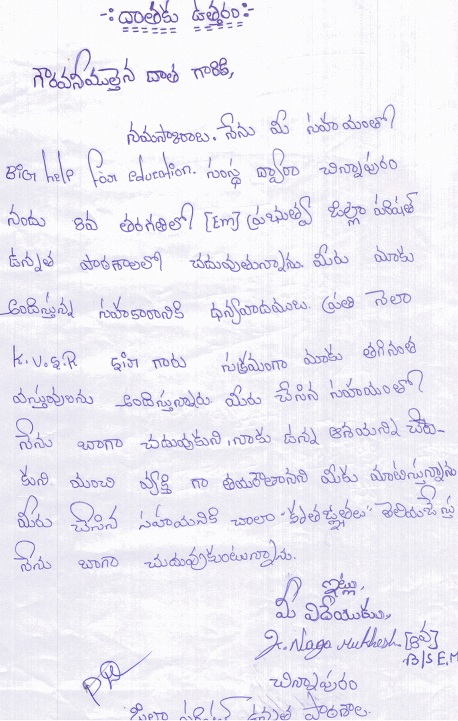 -: దాతకు ఉత్తరం :-
గౌరవనీయులైన దాత గారికి,
నమస్కారాలు. నేను మీ సహాయంతో
BIG help for education. సంస్థ ద్వారా చిన్నాపురం
నందు 8వ తరగతిలో [EM] ప్రభుత్వ జిల్లా పరిషత్
ఉన్నత పాఠశాలలో చదువుతున్నాను. మీరు మాకు
అందిస్తున్న సహకారానికి ధన్యవాదములు. ప్రతి నెలా
K.V.S.R గారు సక్రమంగా మాకు తగినంత
వస్తువులను అందిస్తున్నారు. మీరు చేసిన సహాయంతో
నేను బాగా చదువుకుని, నాకు ఉన్న ఆశయాన్ని చేరు-
కుని మంచి వ్యక్తి గా తయారౌతానని మీకు మాటిస్తున్నాను
మీరు చేసిన సహాయనికి చాలా "కృతజ్ఞతలు" తెలియచేస్తు
నేను బాగా చదువుకుంటున్నాను.
ఇట్లు,
మీ విదేయుడు,
K. Naga Mukhesh [8వ]
B/S E.M
చిన్నాపురం
జిల్లా పరిషత్ ఉన్నత పాఠశాల.